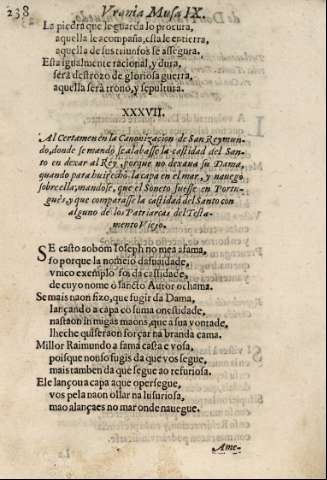 238 Vrania Musa IX.
La piedra que le guarda lo procura,
aquella le acompaña, esta le entierra,
aquella de sus triunfos se assegura.
Esta igualmente racional, y dura,
será destrozo de gloriosa guerra,
aquella será trono, y sepultura.
XXXVII.
Al Certamen en la Canonizacion de San Reymun-
do, donde se mandó se alabasse la castidad del San-
to en dexar al Rey, porque no dexaua su Dama,
quando para huir echó la capa en el mar, y nauegó
sobre ella; mandose, que el Soneto fuesse en Portu-
guès, y que comparasse la castidad del Santo con
alguno de los Patriarcas del Testa-
mento Viejo.
SE casto ao bom Ioseph no mea a fama,
so porque la nomeio da suidade,
vnico exemplo foi da castidade,
de cuyo nome o sancto Autor o chama.
Se mais naon fizo, que fugir da Dama,
lançando a capa có suma onestidade,
nas taon inimigas maons, que a sua vontade,
lhe che quiseraon forçar na branda cama.
Millor Raimundo a fama casta e vosa,
pois que non so fugis da que vos segue,
mais tamben da que segue ao refuriosa.
Ele lançou a capa a que o persegue,
vos pela naon ollar na lusuriosa,
mao alançaes no mar onde nauegue.
Ame-